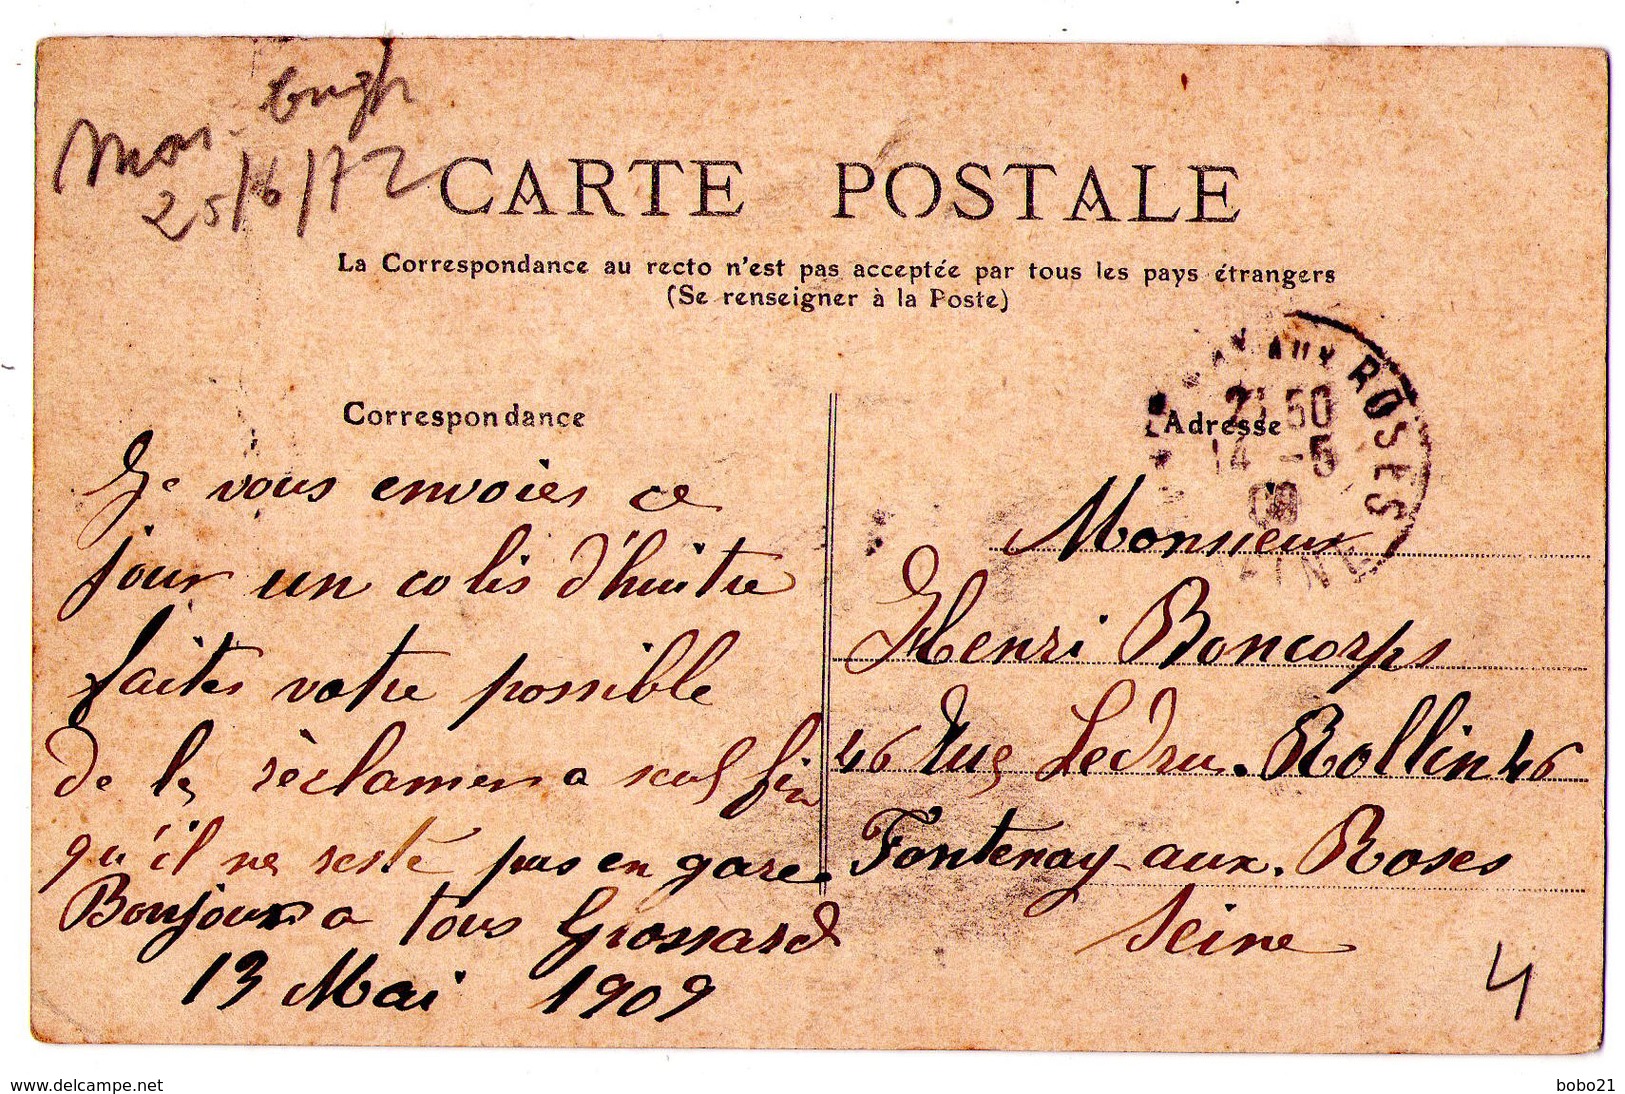 25/6/72
CARTE POSTALE
La Correspondance au recto n'est pas acceptée par tous les pays étrangers
(Se renseigner à la Poste)
Correspondance
Je vous envoies ce
jour un colis d'huitre
faites votre possible
de le réclamer a seul fin
qu'il ne reste pas en gare.
Bonjour a tous Grossard
13 Mai 1909
Adresse
AUX ROSES
14 -5
09
Monsieur
Henri Boncorps
46 Rue Ledru. Rollin 46
Fontenay-aux. Roses
Seine
4
www.delcampe.net
bobo21